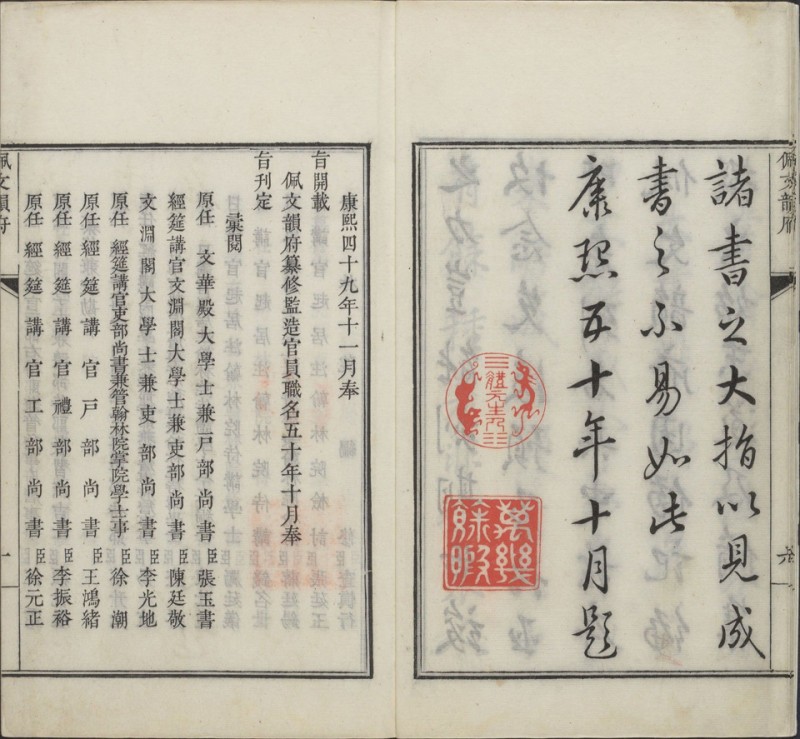 佩文韻府
諸書之大指以見成
書之不易如此
康熙五十年十月題
體元主人
萬幾餘暇
六
康熙四十九年十一月奉
旨開載
佩文韻府纂修監造官員職名五十年十月奉
旨刊定
彙閱
原任文華殿大學士兼戶部尚書臣張玉書
經筵講官文淵閣大學士兼吏部尚書臣陳廷敬
文淵閣大學士兼吏部尚書臣李光地
原任經筵講官吏部尚書兼管翰林院掌院學士事臣徐潮
原任經筵講官戶部尚書臣王鴻緒
原任經筵講官禮部尚書臣李振裕
原任經筵講官工部尚書臣徐元正
佩文韻府
一